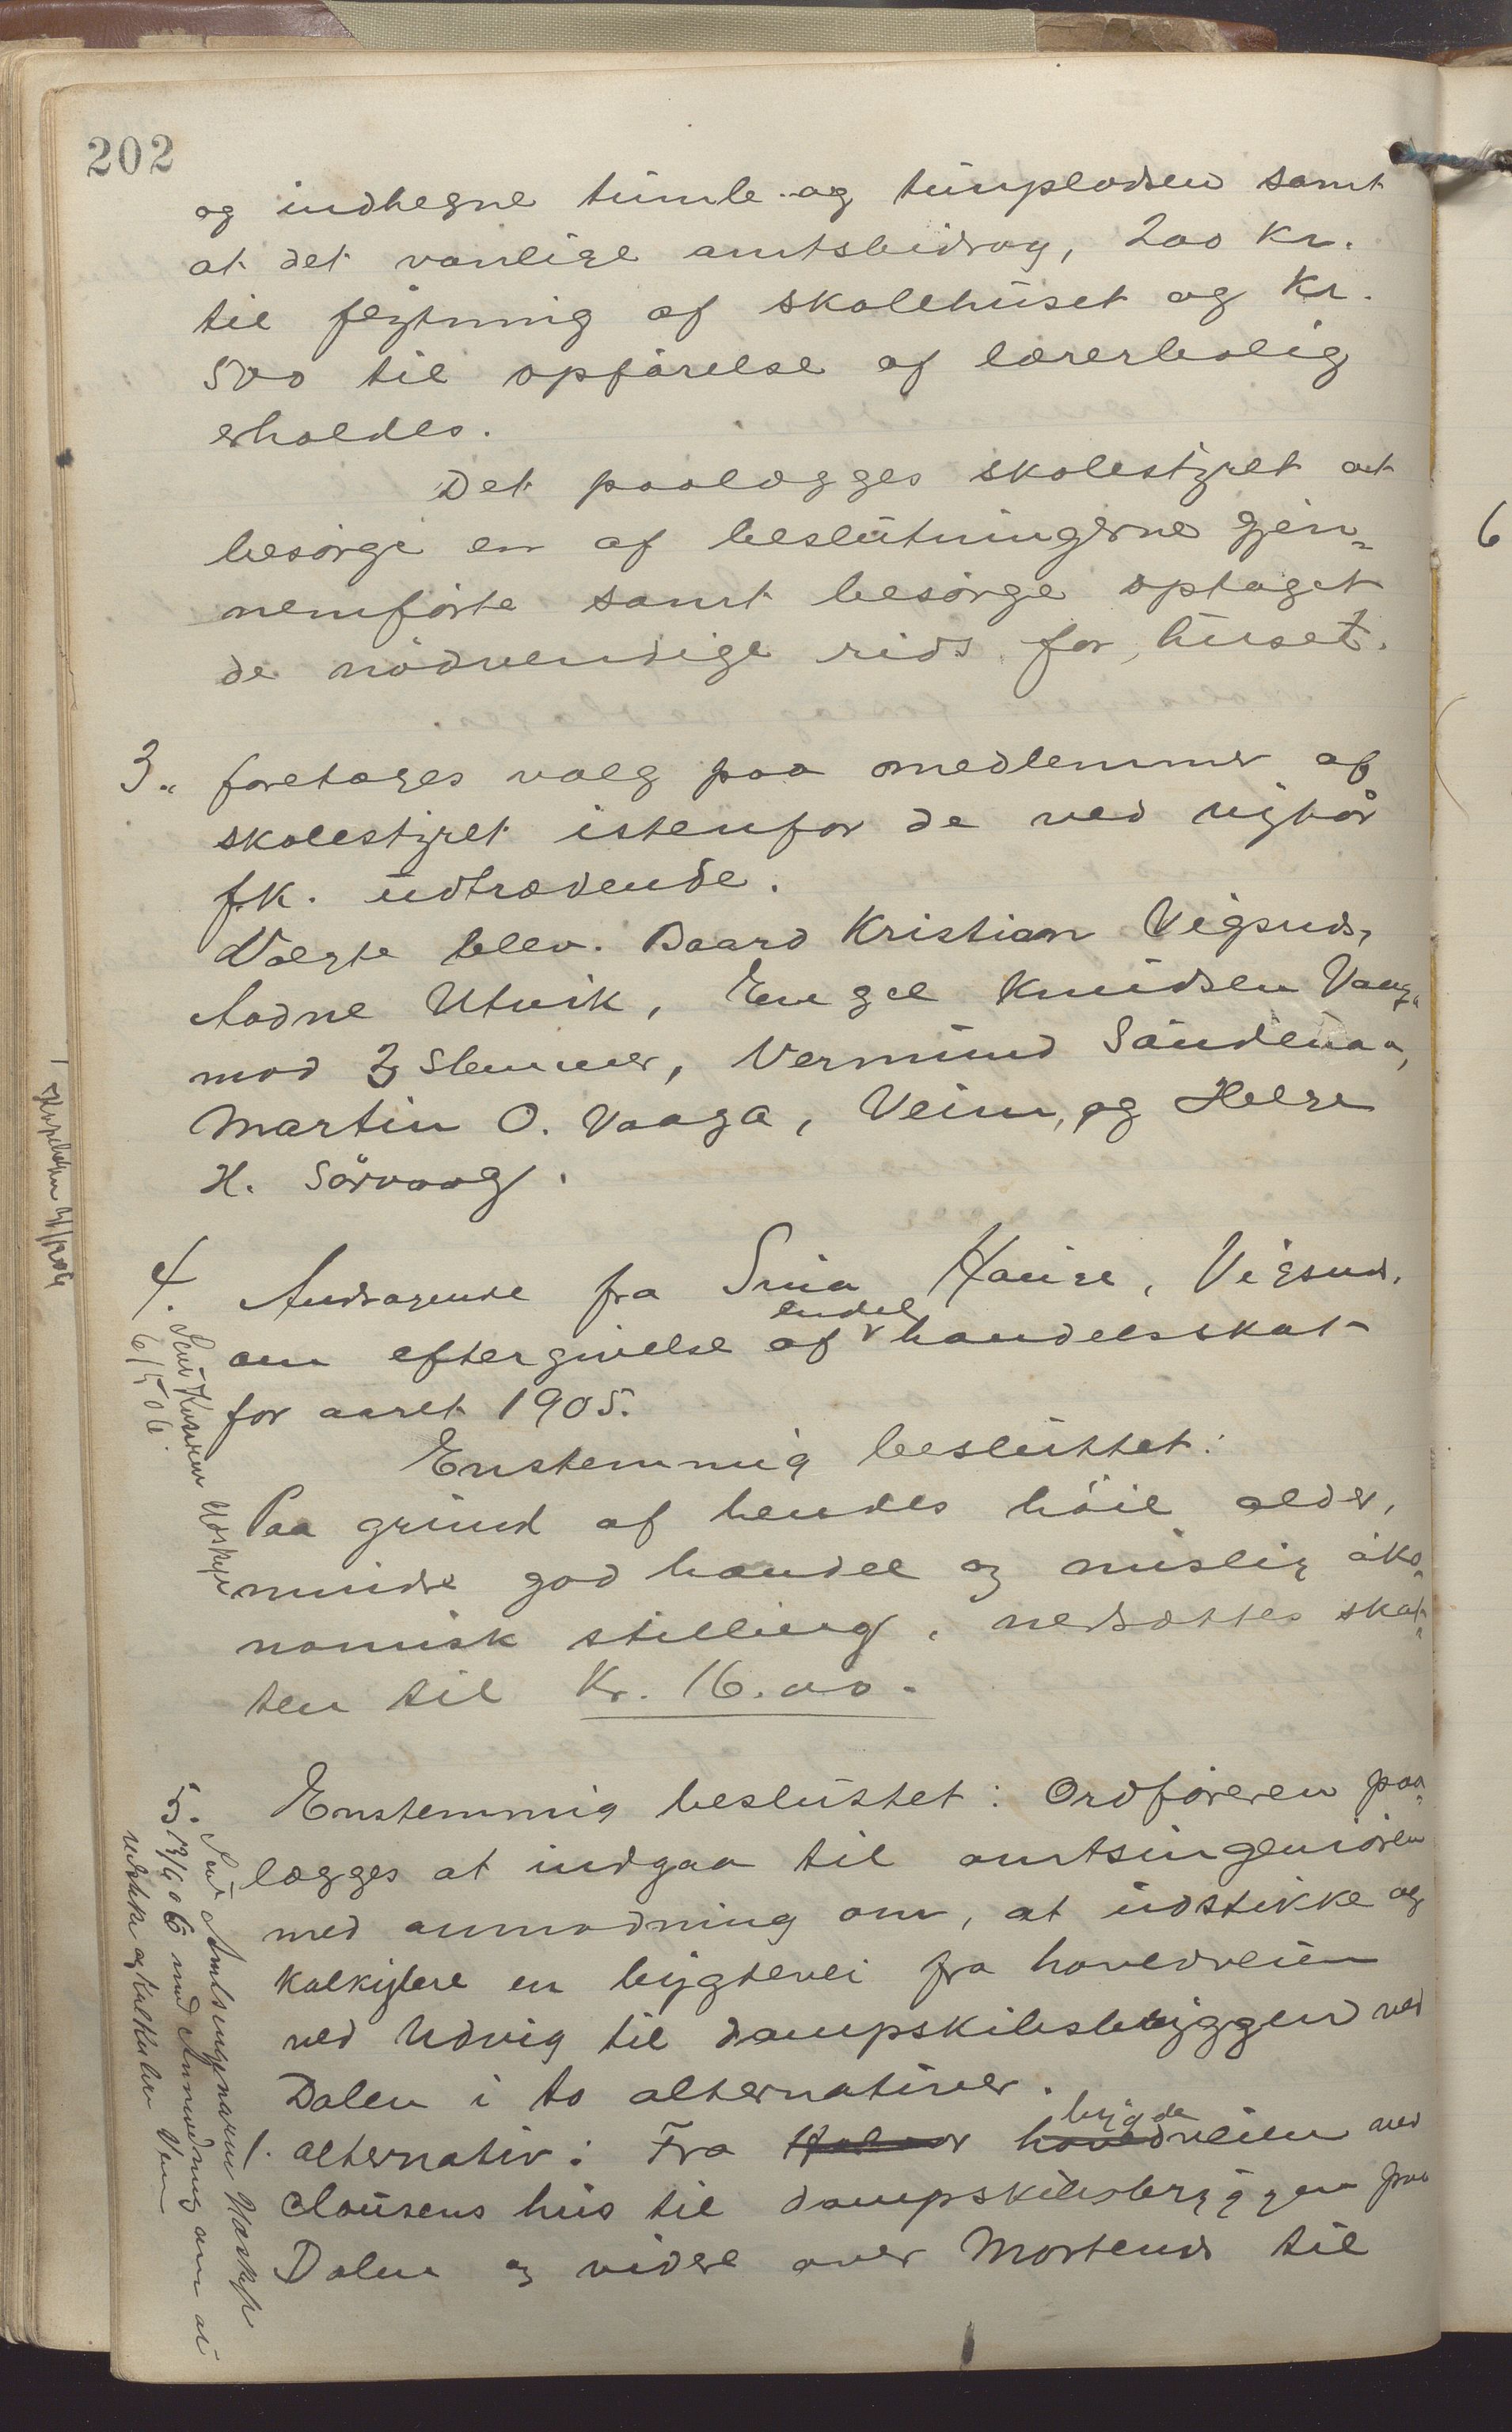 202
og indhegne tomte og tunpladsen samt
at det vanlige amtsbidrag, 200 Kr.
til flytning af skolehuset og Kr.
500 til opførelse af lærerbolig
erholdes.
Det paalægges skolestyret at
besørge en af beslutningerne gjen-
nemførte samt besørge optaget
de nødvendige rids for huset.
3. foretages valg paa medlemmer af
skolestyret istenfor de ved nytaar
f.k. udtrædende.
Valgte blev. Baard Kristian Vigsnds,
Aadne Utvik, Engel Knudsen Vaag.
mod 3 Stemmer, Vermund Sandenaa,
Martin O. Vaaga, Veim, og Helge
H. Sørvaag.
4. Andragende fra Sina Hauge, Vigsnd.
om eftergivelse af endel handelsskat
for aaret 1905.
Enstemmig besluttet:
Paa grund af hendes høie alder,
mindre god handel og mislig øko-
nomisk stilling, nedsættes skat-
ten til Kr. 16.00.
6/5 06.
5. Enstemmig besluttet: Ordføreren paa-
lægges at indgaa til amtsingeniøren
med anmodning om, at udstikke og
kalkylere en bygdevei fra hovedveien
ved Udvig til dampskibsbryggen ved
Dalen i to alternativer.
1. alternativ: Fra bygdeveien ved
Clausens hus til dampskibsbryggen paa
Dalen og videre over Mortends til
Sent Amtsingeniøren
med Anmodning om at
udstikke og kalkulere Vei
6